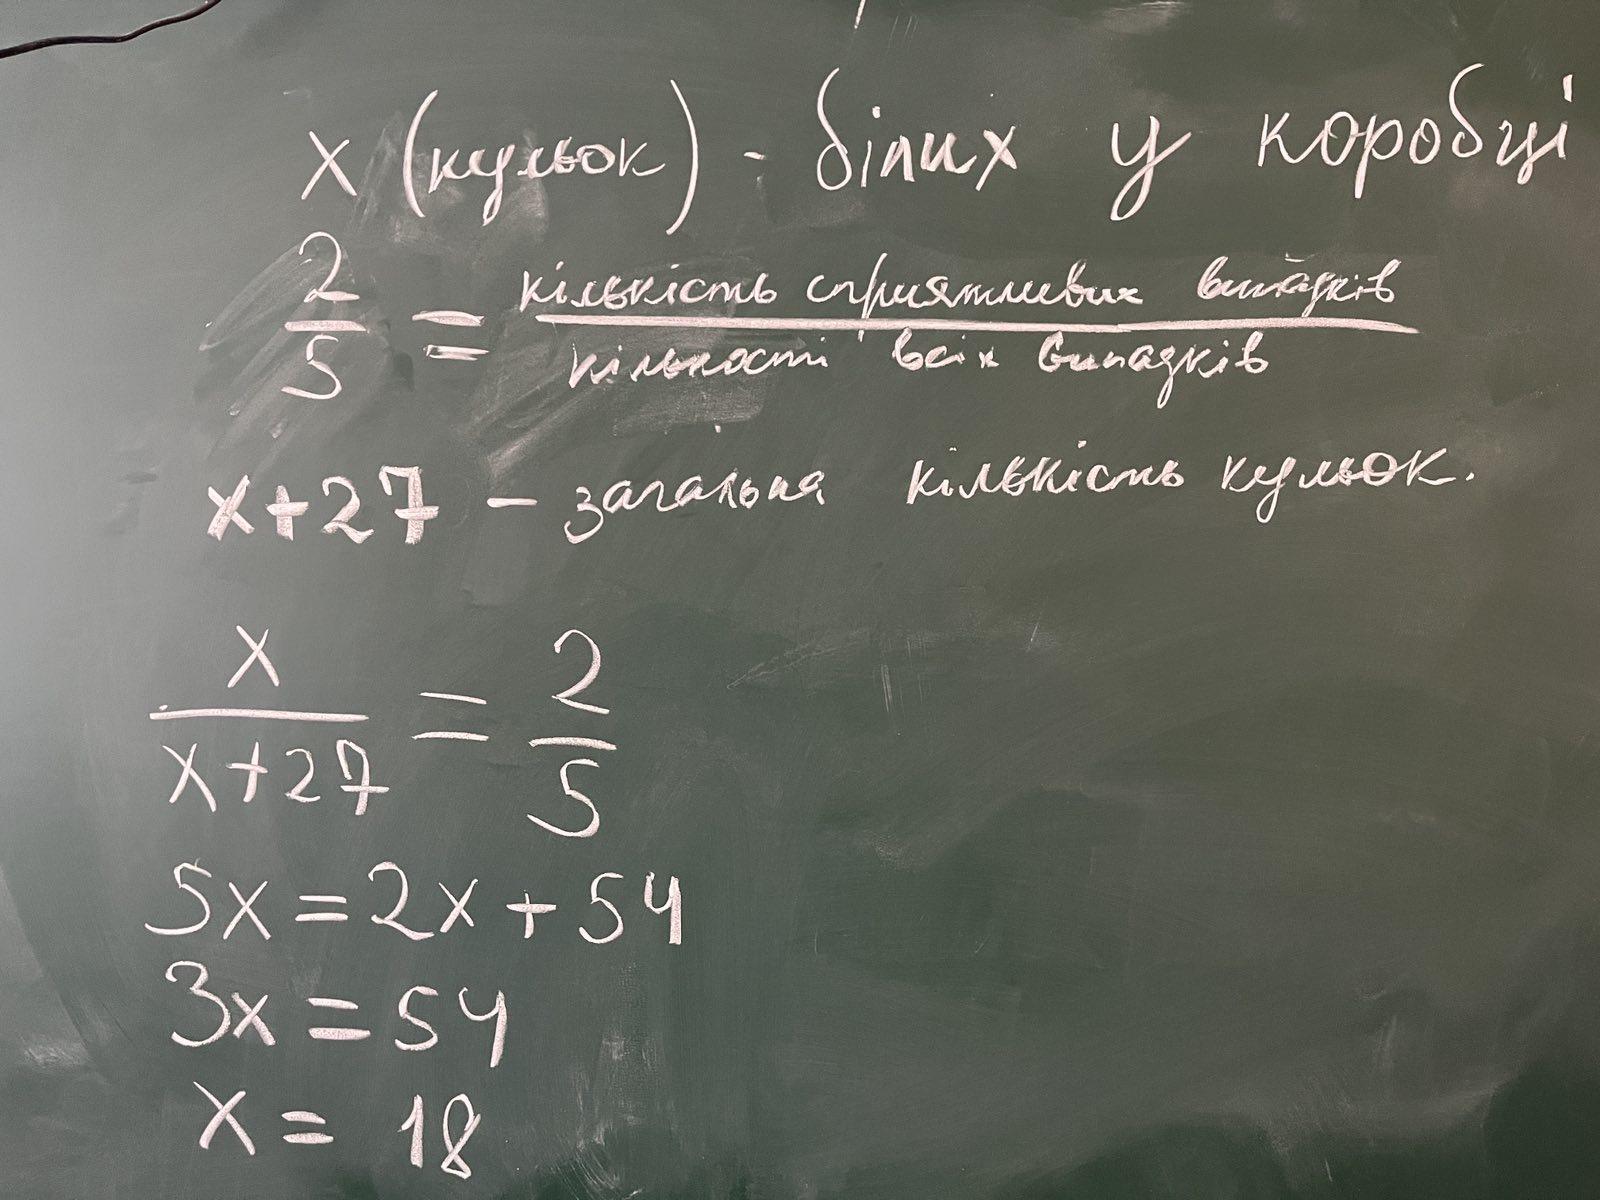 x (кульок) - білих у коробці
2/5 = кількість сприятливих випадків / кількості всіх випадків
x+27 - загальна кількість кульок.
x/(x+27) = 2/5
5x = 2x + 54
3x = 54
x = 18